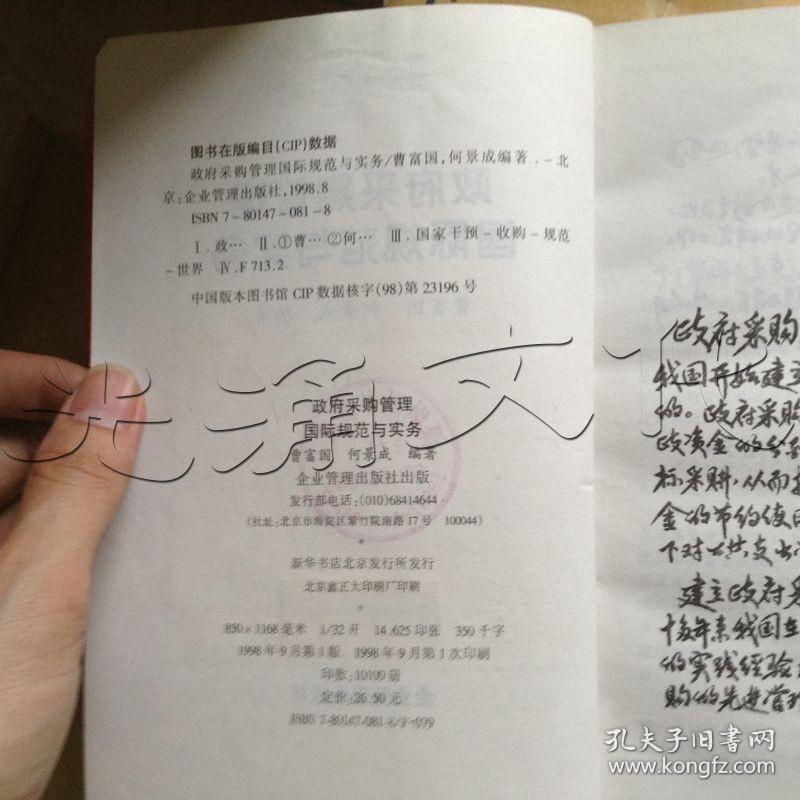 图书在版编目(CIP)数据
政府采购管理国际规范与实务/曹富国,何景成编著.-北
京:企业管理出版社,1998.8
ISBN 7-80147-081-8
Ⅰ.政… Ⅱ.①曹…②何… Ⅲ.国家干预-收购-规范
-世界 Ⅳ.F 713.2
中国版本图书馆 CIP 数据核字(98)第 23196 号
政府采购管理
国际规范与实务
曹富国 何景成 编著
企业管理出版社出版
发行部电话:(010)68414644
(社址:北京市海淀区紫竹院南路17号 100044)
*
新华书店北京发行所发行
北京鑫正大印刷厂印刷
*
850×1168毫米 1/32开 14.625印张 350千字
1998年9月第1版 1998年9月第1次印刷
印数:10100册
定价:26.50元
ISBN 7-80147-081-8/F·079
政府采购
我国开始建立
的。政府采购
政资金的分配
标采购,从而
金的节约使用
下对公共支出
建立政府采
十多年来我国在
的实践经验
购的先进管理
孔夫子旧书网
www.kongfz.com